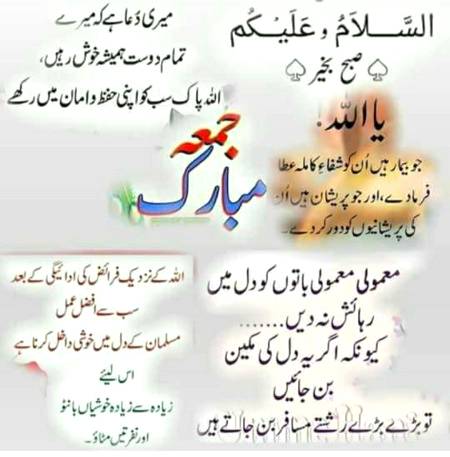 السَّلَامُ و عَلَيْكُم
صبح بخیر
میری دُعا ہے کہ میرے
تمام دوست ہمیشہ خوش رہیں،
اللہ پاک سب کو اپنی حفظ و امان میں رکھے
جمعہ
مبارک
یا اللہ!
جو بیمار ہیں اُن کو شفاءِ کاملہ عطا
فرما دے، اور جو پریشان ہیں اُن
کی پریشانیوں کو دور کر دے۔
معمولی معمولی باتوں کو دل میں
رہائش نہ دیں.......
کیونکہ اگر یہ دل کی مکین
بن جائیں
تو بڑے بڑے رشتے مسافر بن جاتے ہیں
اللہ کے نزدیک فرائض کی ادائیگی کے بعد
سب سے افضل عمل
مسلمان کے دل میں خوشی داخل کرنا ہے
اس لیئے
زیادہ سے زیادہ خوشیاں بانٹو
اور نفرتیں مٹاؤ۔